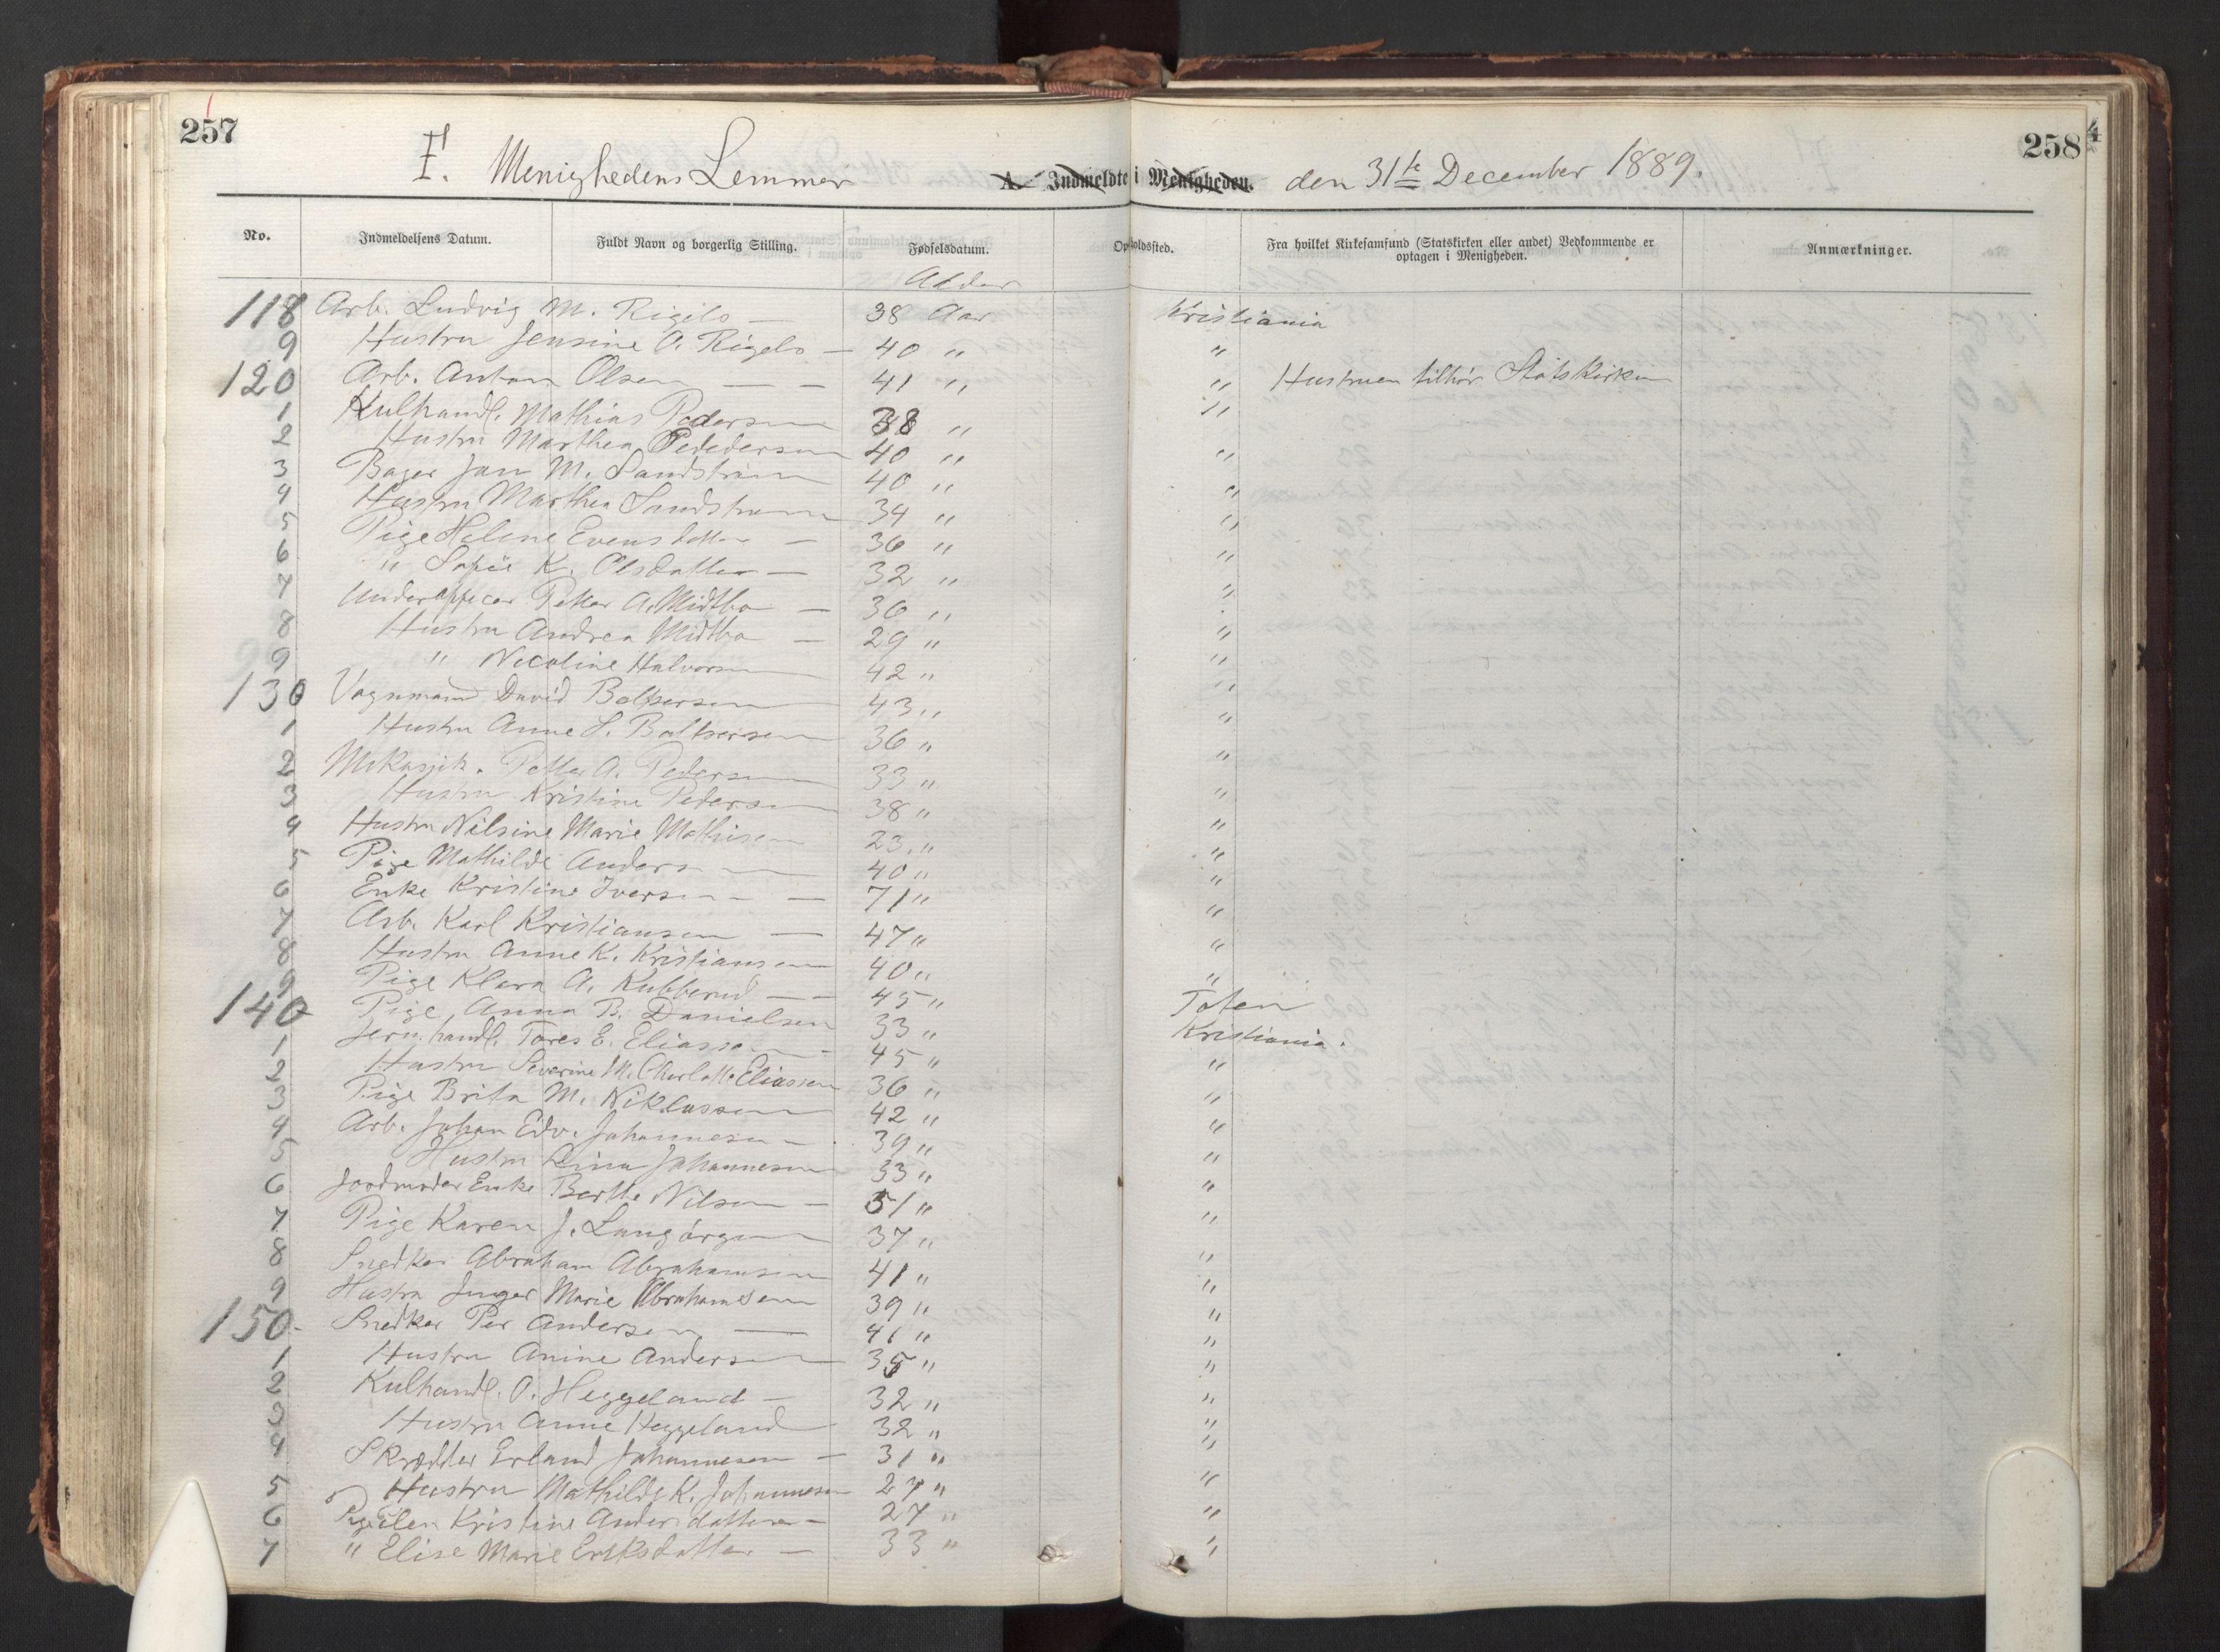 257
258
4
F. Menighedens Lemmer A. Indmeldte i Menigheden. den 31te December 1889.
No. Indmeldelsens Datum. Fuldt Navn og borgerlig Stilling. Fødselsdatum. Opholdssted. Fra hvilket Kirkesamfund (Statskirken eller andet) Vedkommende er optagen i Menigheden. Anmærkninger.
Alder
118 Arb. Ludvig M. Rigels — 38 Aar Kristiania
9 Hustru Jensine O. Rigels — 40 " "
120 Arb. Anton Olsen — — 41 " " Hustruen tilhör Statskirken
1 Kulhandl. Mathias Pedersen 38 " "
2 Hustru Marthea Pededersen 40 " "
3 Bager Jan M. Sandstrøm 40 " "
4 Hustru Marthea Sandstrøm 34 " "
5 Pige Helene Evensdatter — 36 " "
6 " Sofie K. Olsdatter — 32 " "
7 Underofficer Petter A. Midtbø — 36 " "
8 Hustru Andrea Midtbø — 29 " "
9 " Nicoline Halvorsen 42 " "
130 Vognmand David Baltsersen 43 " "
1 Hustru Anne S. Baltsersen 36 " "
2 Petter A. Pedersen 33 " "
3 Hustru Kristine Pedersen 38 " "
4 Hustru Nilsine Marie Mathisen 23 " "
5 Pige Mathilde Andersen 40 " "
6 Enke Kristine Iversen — 71 " "
7 Arb. Karl Kristiansen — 47 " "
8 Hustru Anne K. Kristiansen 40 " "
9 Pige Klara A. Kubberud — — 45 " "
140 Pige Anna B. Danielsen 33 " Toten
1 Jernhandl. Tores E. Eliassen — 45 " Kristiania.
2 Hustru Severine M. Charlotte Eliassen 36 " "
3 Pige Brita M. Niklassen 42 " "
4 Arb. Johan Edv. Johannesen — 39 " "
5 Hustru Lina Johannesen 33 " "
6 Jordmoder Enke Berthe Nilsen — 51 " "
7 Pige Karen J. Langörgen 37 " "
8 Snedker Abraham Abrahamsen 41 " "
9 Hustru Inger Marie Abrahamsen 39 " "
150 Snedker Per Andersen — 41 " "
1 Hustru Anine Andersen 35 " "
2 Kulhandl. O. Heggeland — 32 " "
3 Hustru Anne Heggeland 32 " "
4 Skrædder Erland Johannesen — 31 " "
5 Hustru Mathilde K. Johannesen " "
6 Pige Elen Kristine Andersdatter — 27 " "
7 " Elise Marie Eriksdatter — 33 " "